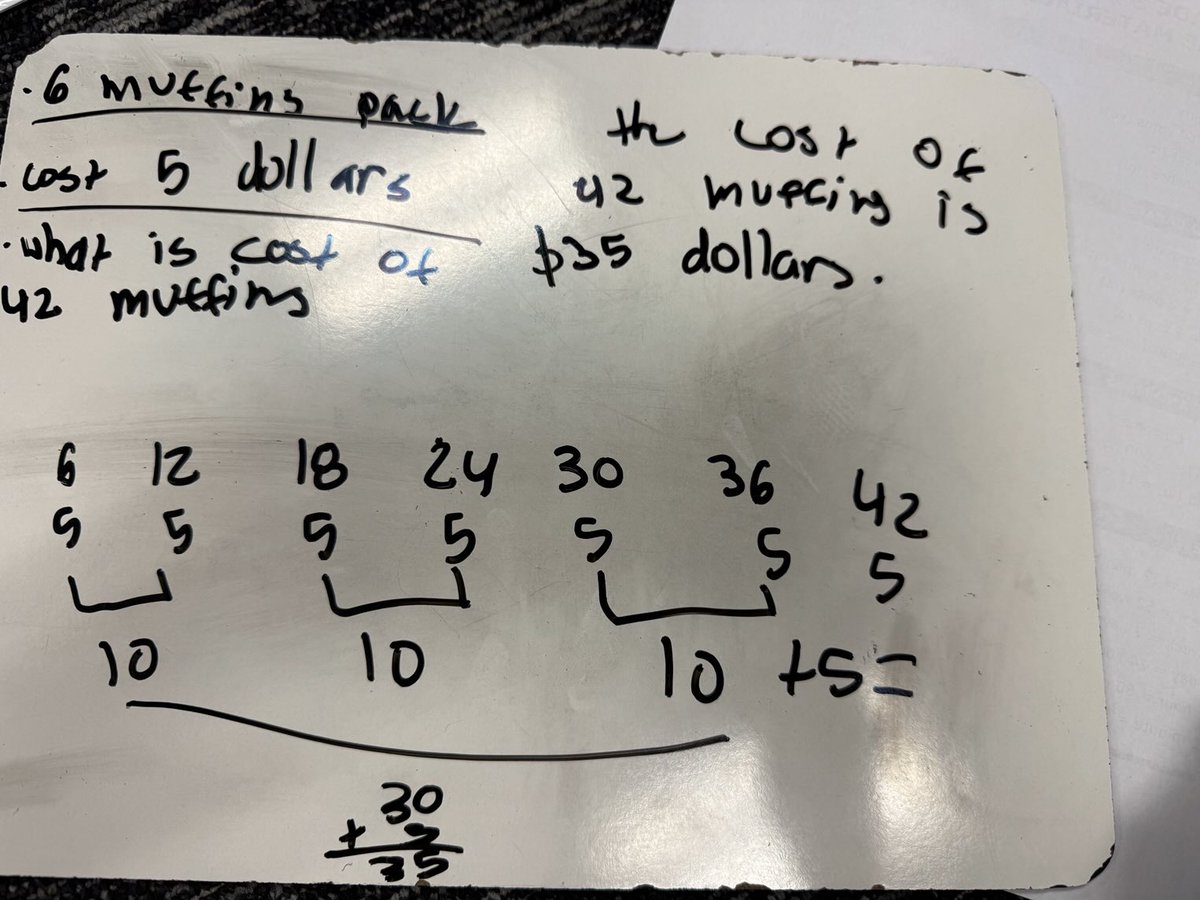 . 6 muffins pack
. cost 5 dollars
. what is cost of
42 muffins
the cost of
42 muffins is
$35 dollars.
6 12 18 24 30 36 42
5 5 5 5 5 5 5
10 10 10 +5=
30
+ 5
35